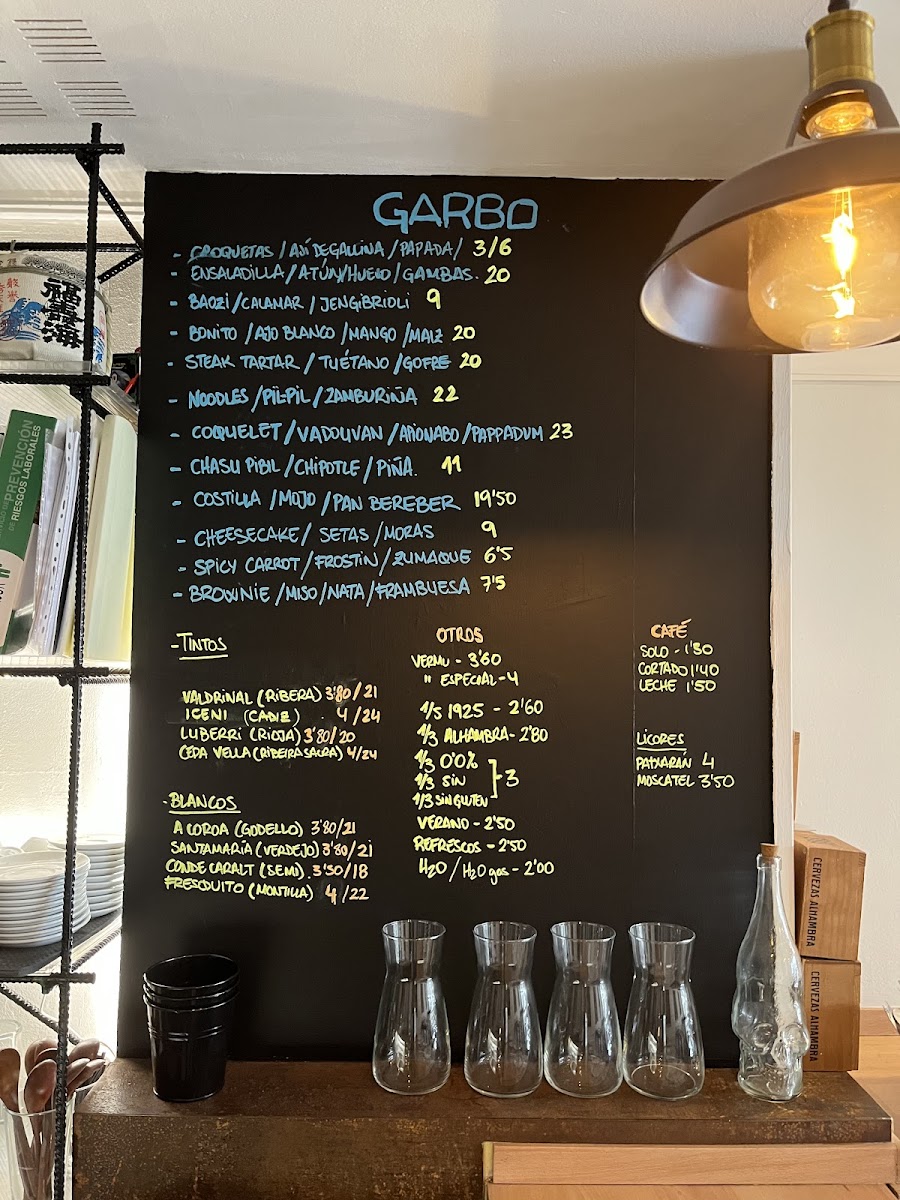 GARBO
- CROQUETAS / AJÍ DE GALLINA / PAPADA / 3/6
- ENSALADILLA / ATÚN/HUEVO / GAMBAS. 20
- BAOZI / CALAMAR / JENGIBRIOLI 9
- BONITO / AJO BLANCO / MANGO / MAIZ 20
- STEAK TARTAR / TUÉTANO / GOFRE 20
- NOODLES / PIL-PIL / ZAMBURIÑA 22
- COQUELET / VADOUVAN / APIONABO / PAPPADUM 23
- CHASU PIBIL / CHIPOTLE / PIÑA. 11
- COSTILLA / MOJO / PAN BEREBER 19'50
- CHEESECAKE / SETAS / MORAS 9
- SPICY CARROT / FROSTIN / ZUMAQUE 6'5
- BROWNIE / MISO / NATA / FRAMBUESA 7'5
- TINTOS
VALDRINAL (RIBERA) 3'80/21
ICENI (CADIZ) 4/24
LUBERRI (RIOJA) 3'80/20
CEDA VELLA (RIBEIRA SACRA) 4/24
- BLANCOS
A COROA (GODELLO) 3'80/21
SANTAMARIA (VERDEJO) 3'80/21
CONDE CARALT (SEMI) 3'50/18
FRESQUITO (MONTILLA) 4/22
OTROS
VERMU - 3'60
" ESPECIAL - 4
1/5 1925 - 2'60
1/3 ALHAMBRA - 2'80
1/3 0'0%
1/3 SIN } 3
1/3 SIN GLUTEN
VERANO - 2'50
REFRESCOS - 2'50
H2O / H2O gas - 2'00
CAFÉ
SOLO - 1'30
CORTADO 1'40
LECHE 1'50
LICORES
PATXARÁN 4
MOSCATEL 3'50
PREVENCIÓN
DE RIESGOS LABORALES
CERVEZAS ALHAMBRA
CERVEZAS ALHAMBRA